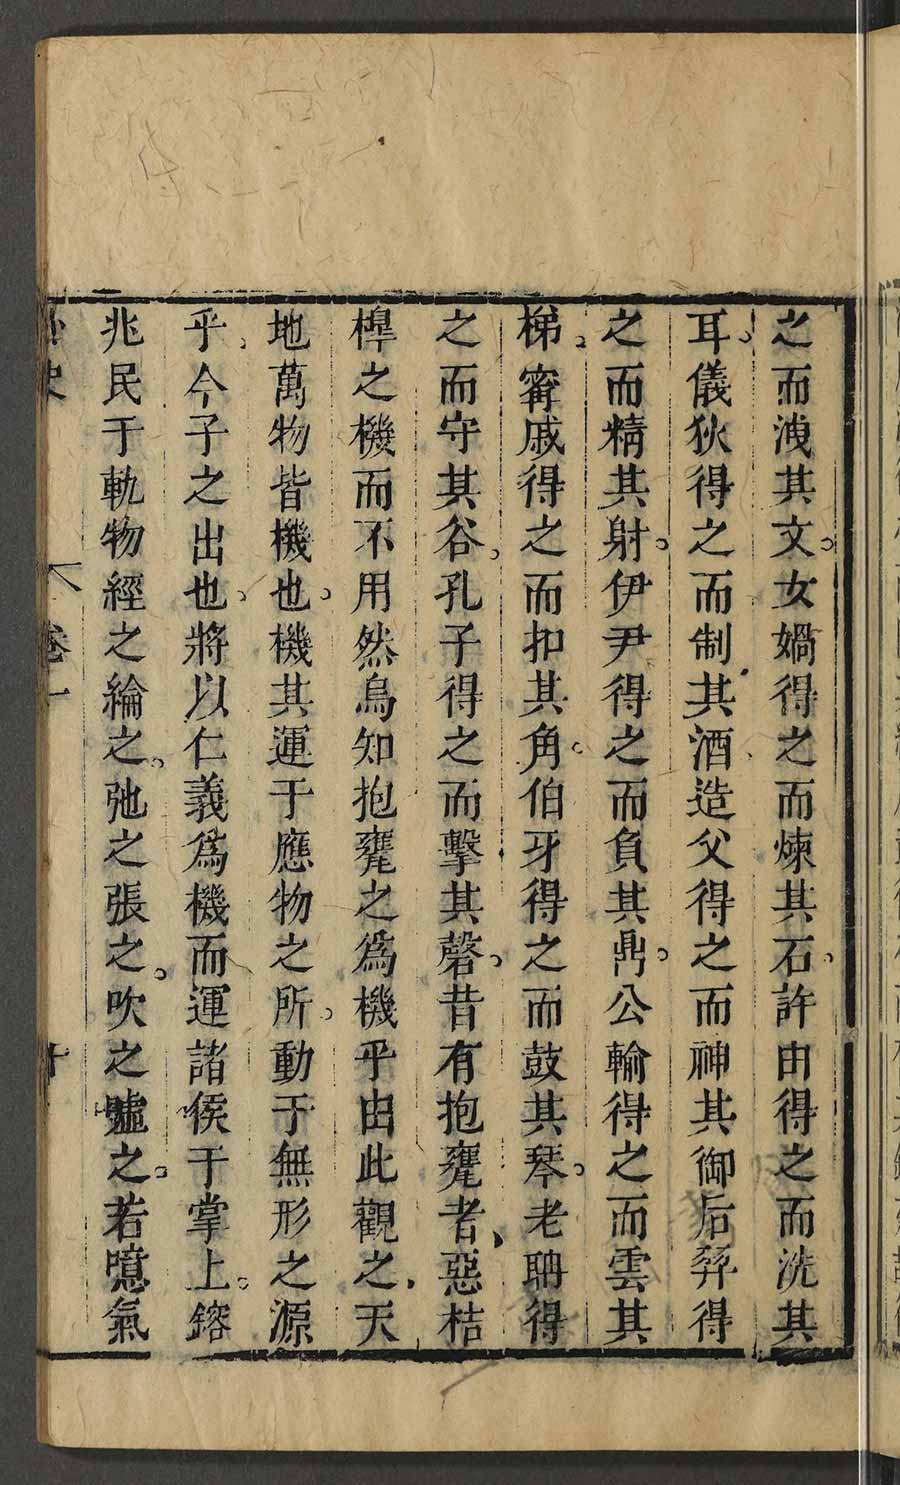 之而洩其文女媧得之而煉其石許由得之而洗其
耳儀狄得之而制其酒造父得之而神其御后羿得
之而精其射伊尹得之而負其鼎公輸得之而雲其
梯甯戚得之而扣其角伯牙得之而鼓其琴老聃得
之而守其谷孔子得之而擊其磬昔有抱甕者惡桔
槹之機而不用然烏知抱甕之爲機乎由此觀之天
地萬物皆機也機其運于應物之所動于無形之源
乎今子之出也將以仁義爲機而運諸侯于掌上鎔
兆民于軌物經之綸之弛之張之吹之噓之若噫氣
卷一
十